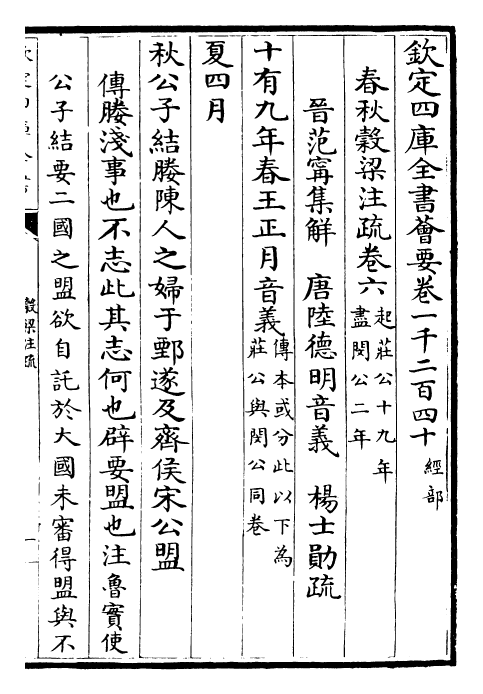 欽定四庫全書薈要卷一千二百四十 經部
春秋穀梁注疏卷六 起莊公十九年
盡閔公二年
晉范甯集解 唐陸德明音義 楊士勛疏
十有九年春王正月音義 傳本或分此以下為
莊公與閔公同卷
夏四月
秋公子結媵陳人之婦于鄄遂及齊侯宋公盟
傳媵淺事也不志此其志何也辟要盟也注魯實使
公子結要二國之盟欲自託於大國未審得盟與不
穀梁注疏